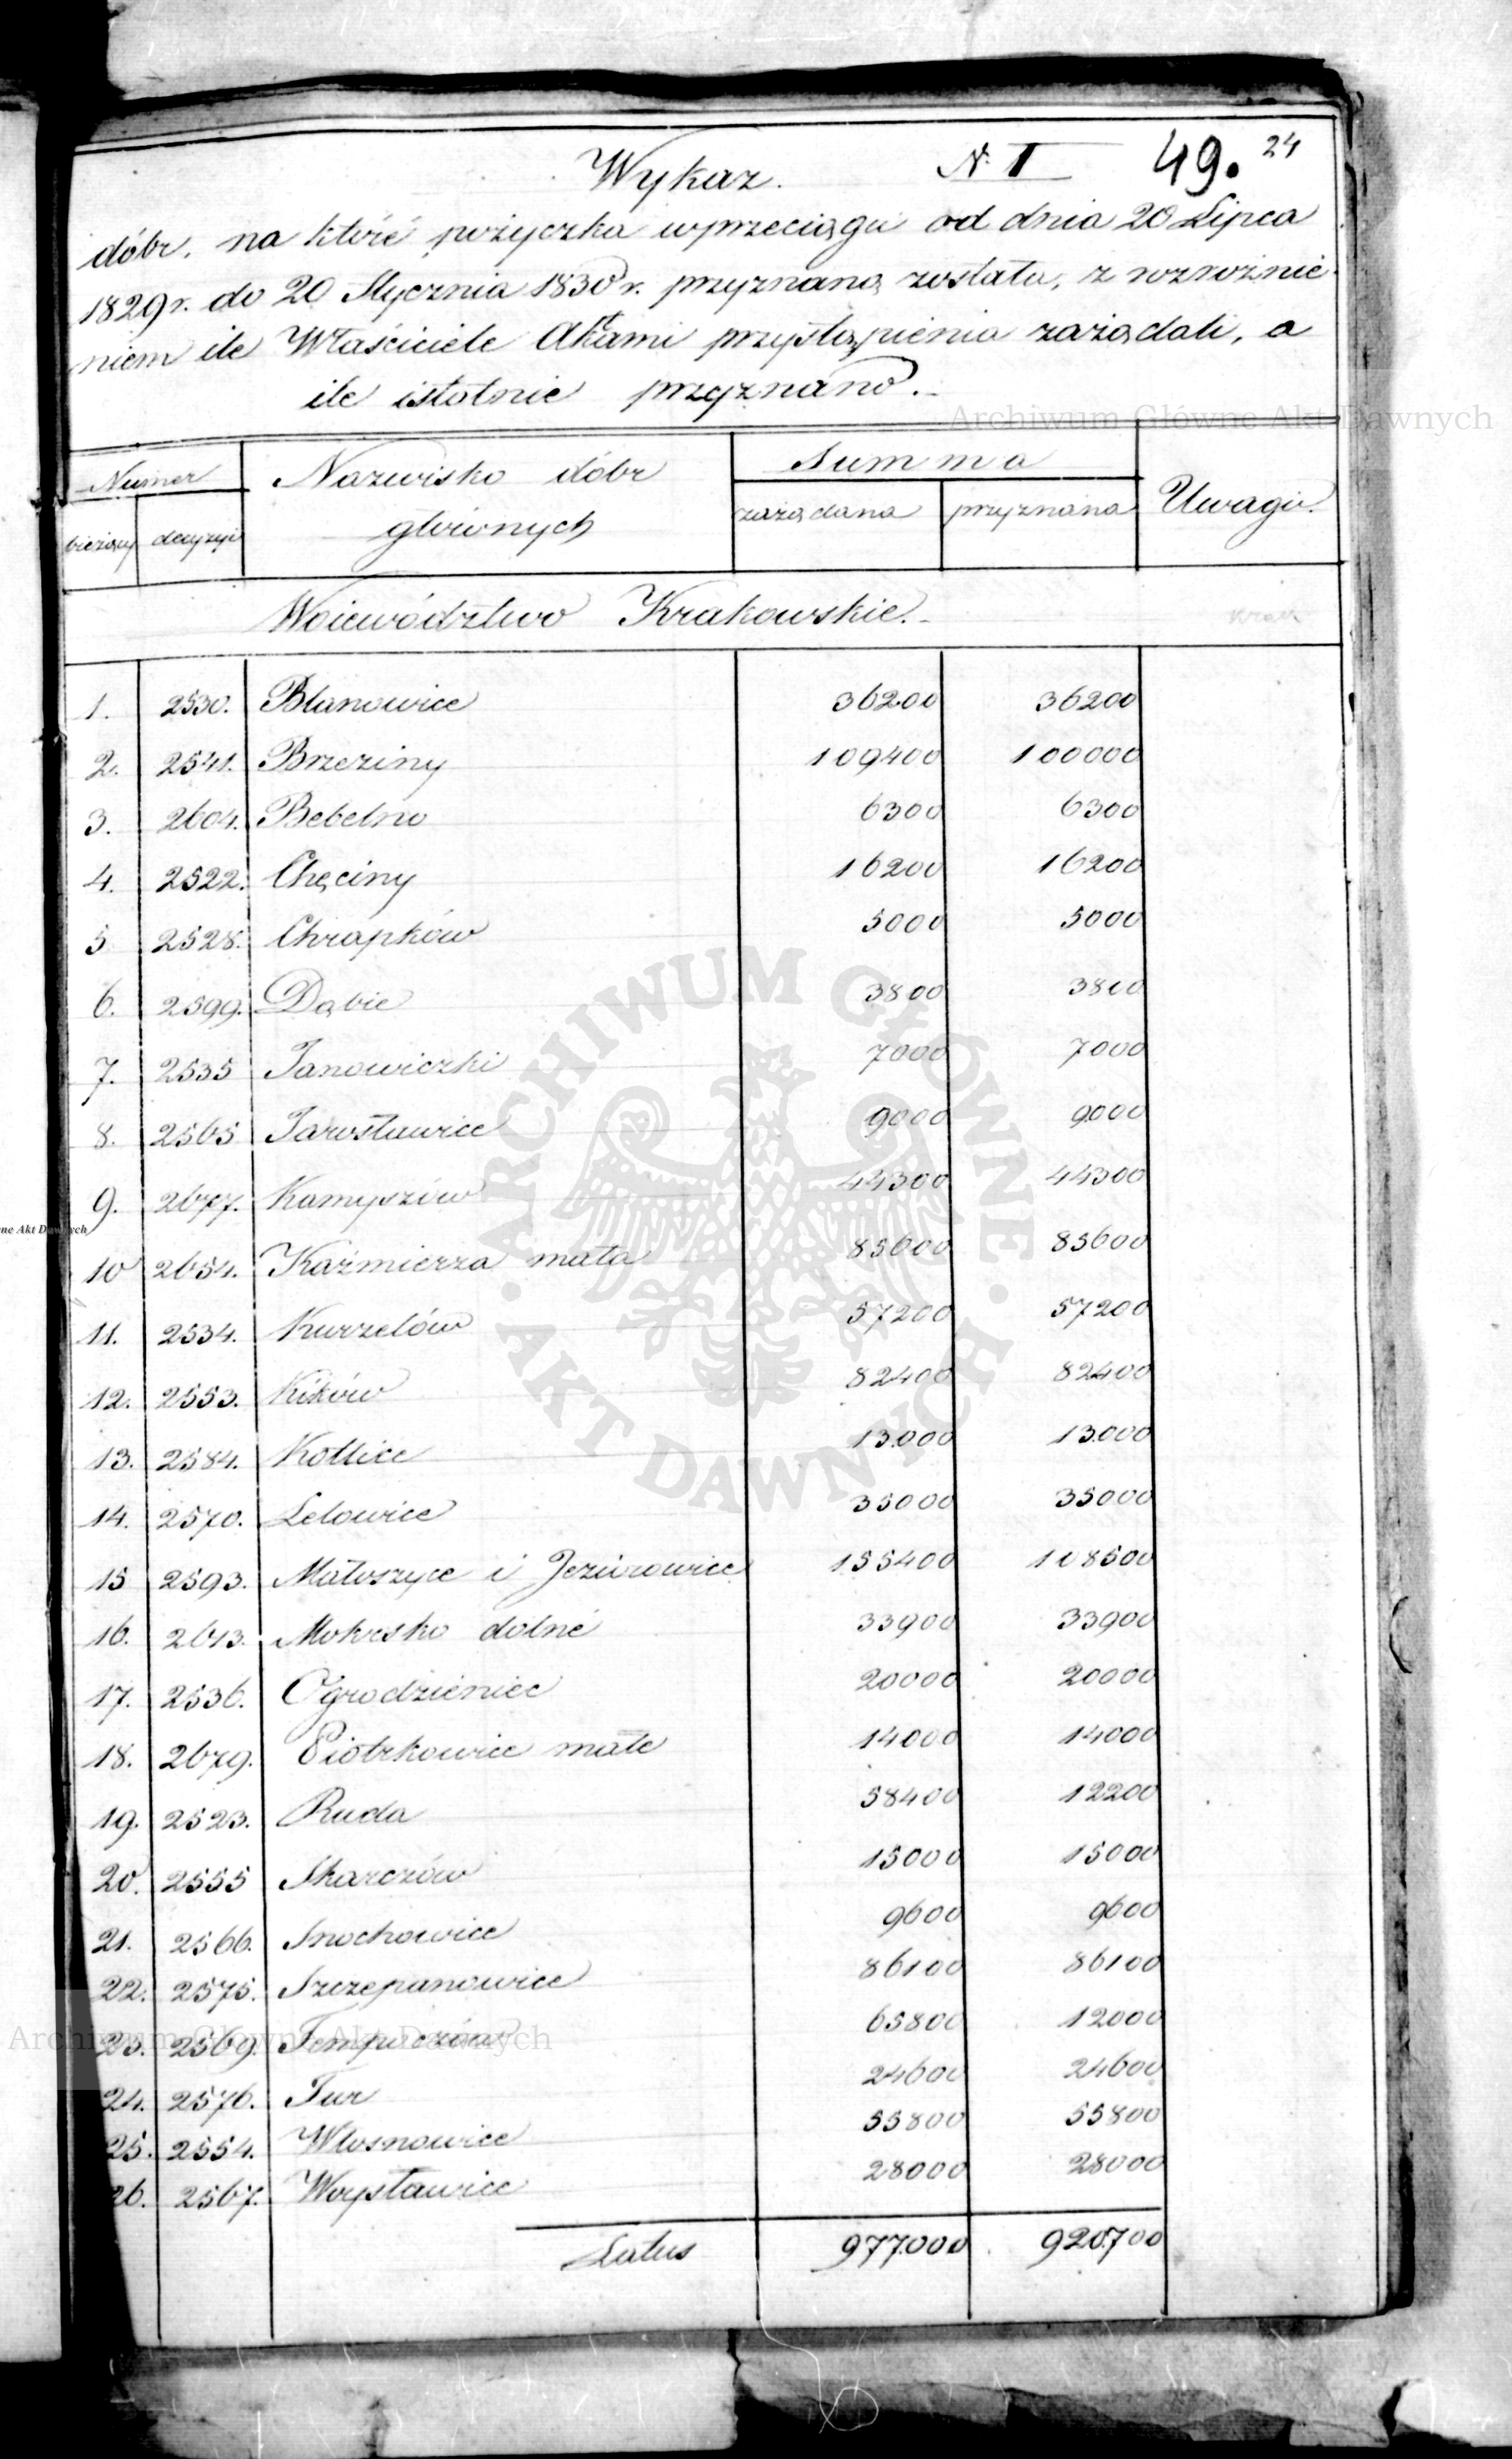 Wykaz. N. I 49. 24
dóbr, na któré pożyczka w przeciągu od dnia 20 Lipca
1829 r. do 20 Stycznia 1830 r. przyznaną została, z rozróżnie-
niem ile Właściciele Aktami przystąpienia zażądali, a
ile istotnie przyznano.
Archiwum Główne Akt Dawnych
Numer Nazwisko dóbr głównych Summa Uwagi.
bieżący decyzyi zażądana przyznana
Woiewództwo Krakowskie.
1. 2530. Blanowice 36200 36200
2. 2541. Brzeziny 109400 100000
3. 2604. Bebelno 6300 6300
4. 2522. Chęciny 16200 16200
5 2528. Chrapków 5000 5000
6. 2599. Dąbie 3800 3800
7. 2535 Janowiczki 7000 7000
8. 2565 Jarosławice 9000 9000
9. 2677. Kamyszów 44300 44300
10 2654. Kaźmierza mała 85600 85600
11. 2534. Kurzelów 57200 57200
12. 2553. Kików 82400 82400
13. 2584. Kotlice 13.000 13.000
14. 2570. Lelowice 35000 35000
15 2593. Małoszyce i Jeziorowice 155400 108500
16. 2613. Mokrsko dolné 33900 33900
17. 2536. Ogrodzieniec 20000 20000
18. 2679. Piotrkowice małe 14000 14000
19. 2523. Ruda 58400 12200
20. 2555 Skarczów 15000 15000
21. 2566. Snochowice 9600 9600
22. 2575. Szczepanowice 86100 86100
23. 2569. Tempoczów 65800 12000
24. 2576. Tur 24600 24600
25. 2554. Włosnowice 55800 55800
26. 2567. Woysławice 28000 28000
Latus 977.000 920.700
ARCHIWUM GŁÓWNE
AKT DAWNYCH
ne Akt Dawnych
Archiwum Główne Akt Dawnych